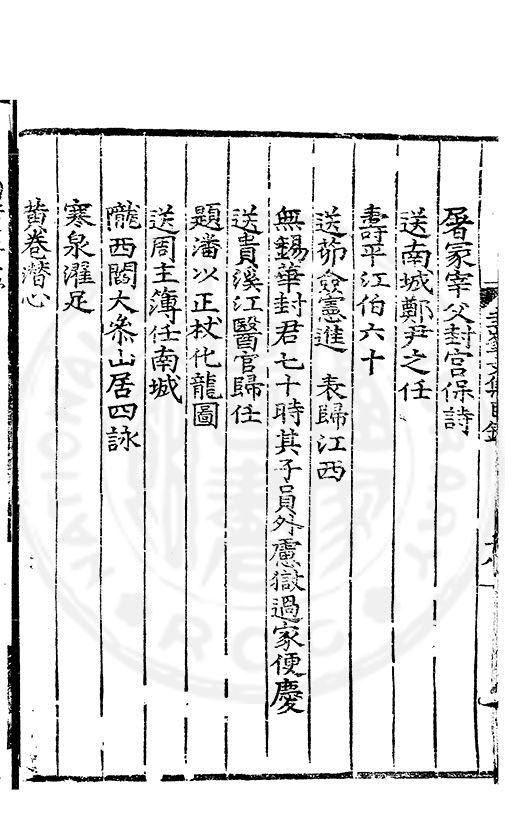 屠冡宰父封宫保詩
送南城鄭尹之任
壽平江伯六十
送茆僉憲進 表歸江西
無錫華封君七十時其子員外慮獄過家便慶
送貴溪江醫官歸任
題潘以正杖化龍圖
送周主簿任南城
隴西閻大叅山居四詠
寒泉濯足
黄卷潜心